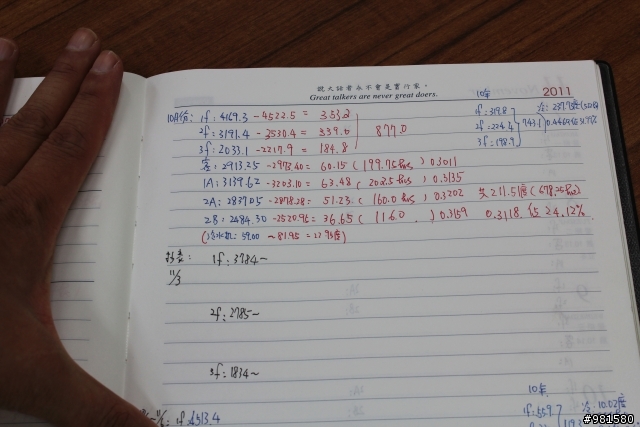 說大話者永不會是實行家。
Great talkers are never great doers.
2011
10月份: 1f: 4169.3 - 4522.5 = 353.2
2f: 3191.4 - 3530.4 = 339.0
3f: 2033.1 - 2217.9 = 184.8
877.0
10年
1f: 319.8
2f: 224.4
3f: 198.9
743.1
客: 2913.25 - 2973.40 = 60.15 (199.75hrs) 0.3011
1A: 3139.62 - 3203.10 = 63.48 (202.5hrs) 0.3135
2A: 2827.05 - 2878.28 = 51.23 (160.0hrs) 0.3202 共 211.5度 (678.25hrs)
2B: 2484.30 - 2520.95 = 36.65 (116.0 ) 0.3159 0.3118 佔 24.12%
(冷水机: 59.00 ~ 81.95 = 22.95度)
11/3
1f: 3784~
2f: 2785~
3f: 1834~
1f: 4513.4
10年
1f: 559.7
冷: 10.02度
#981580